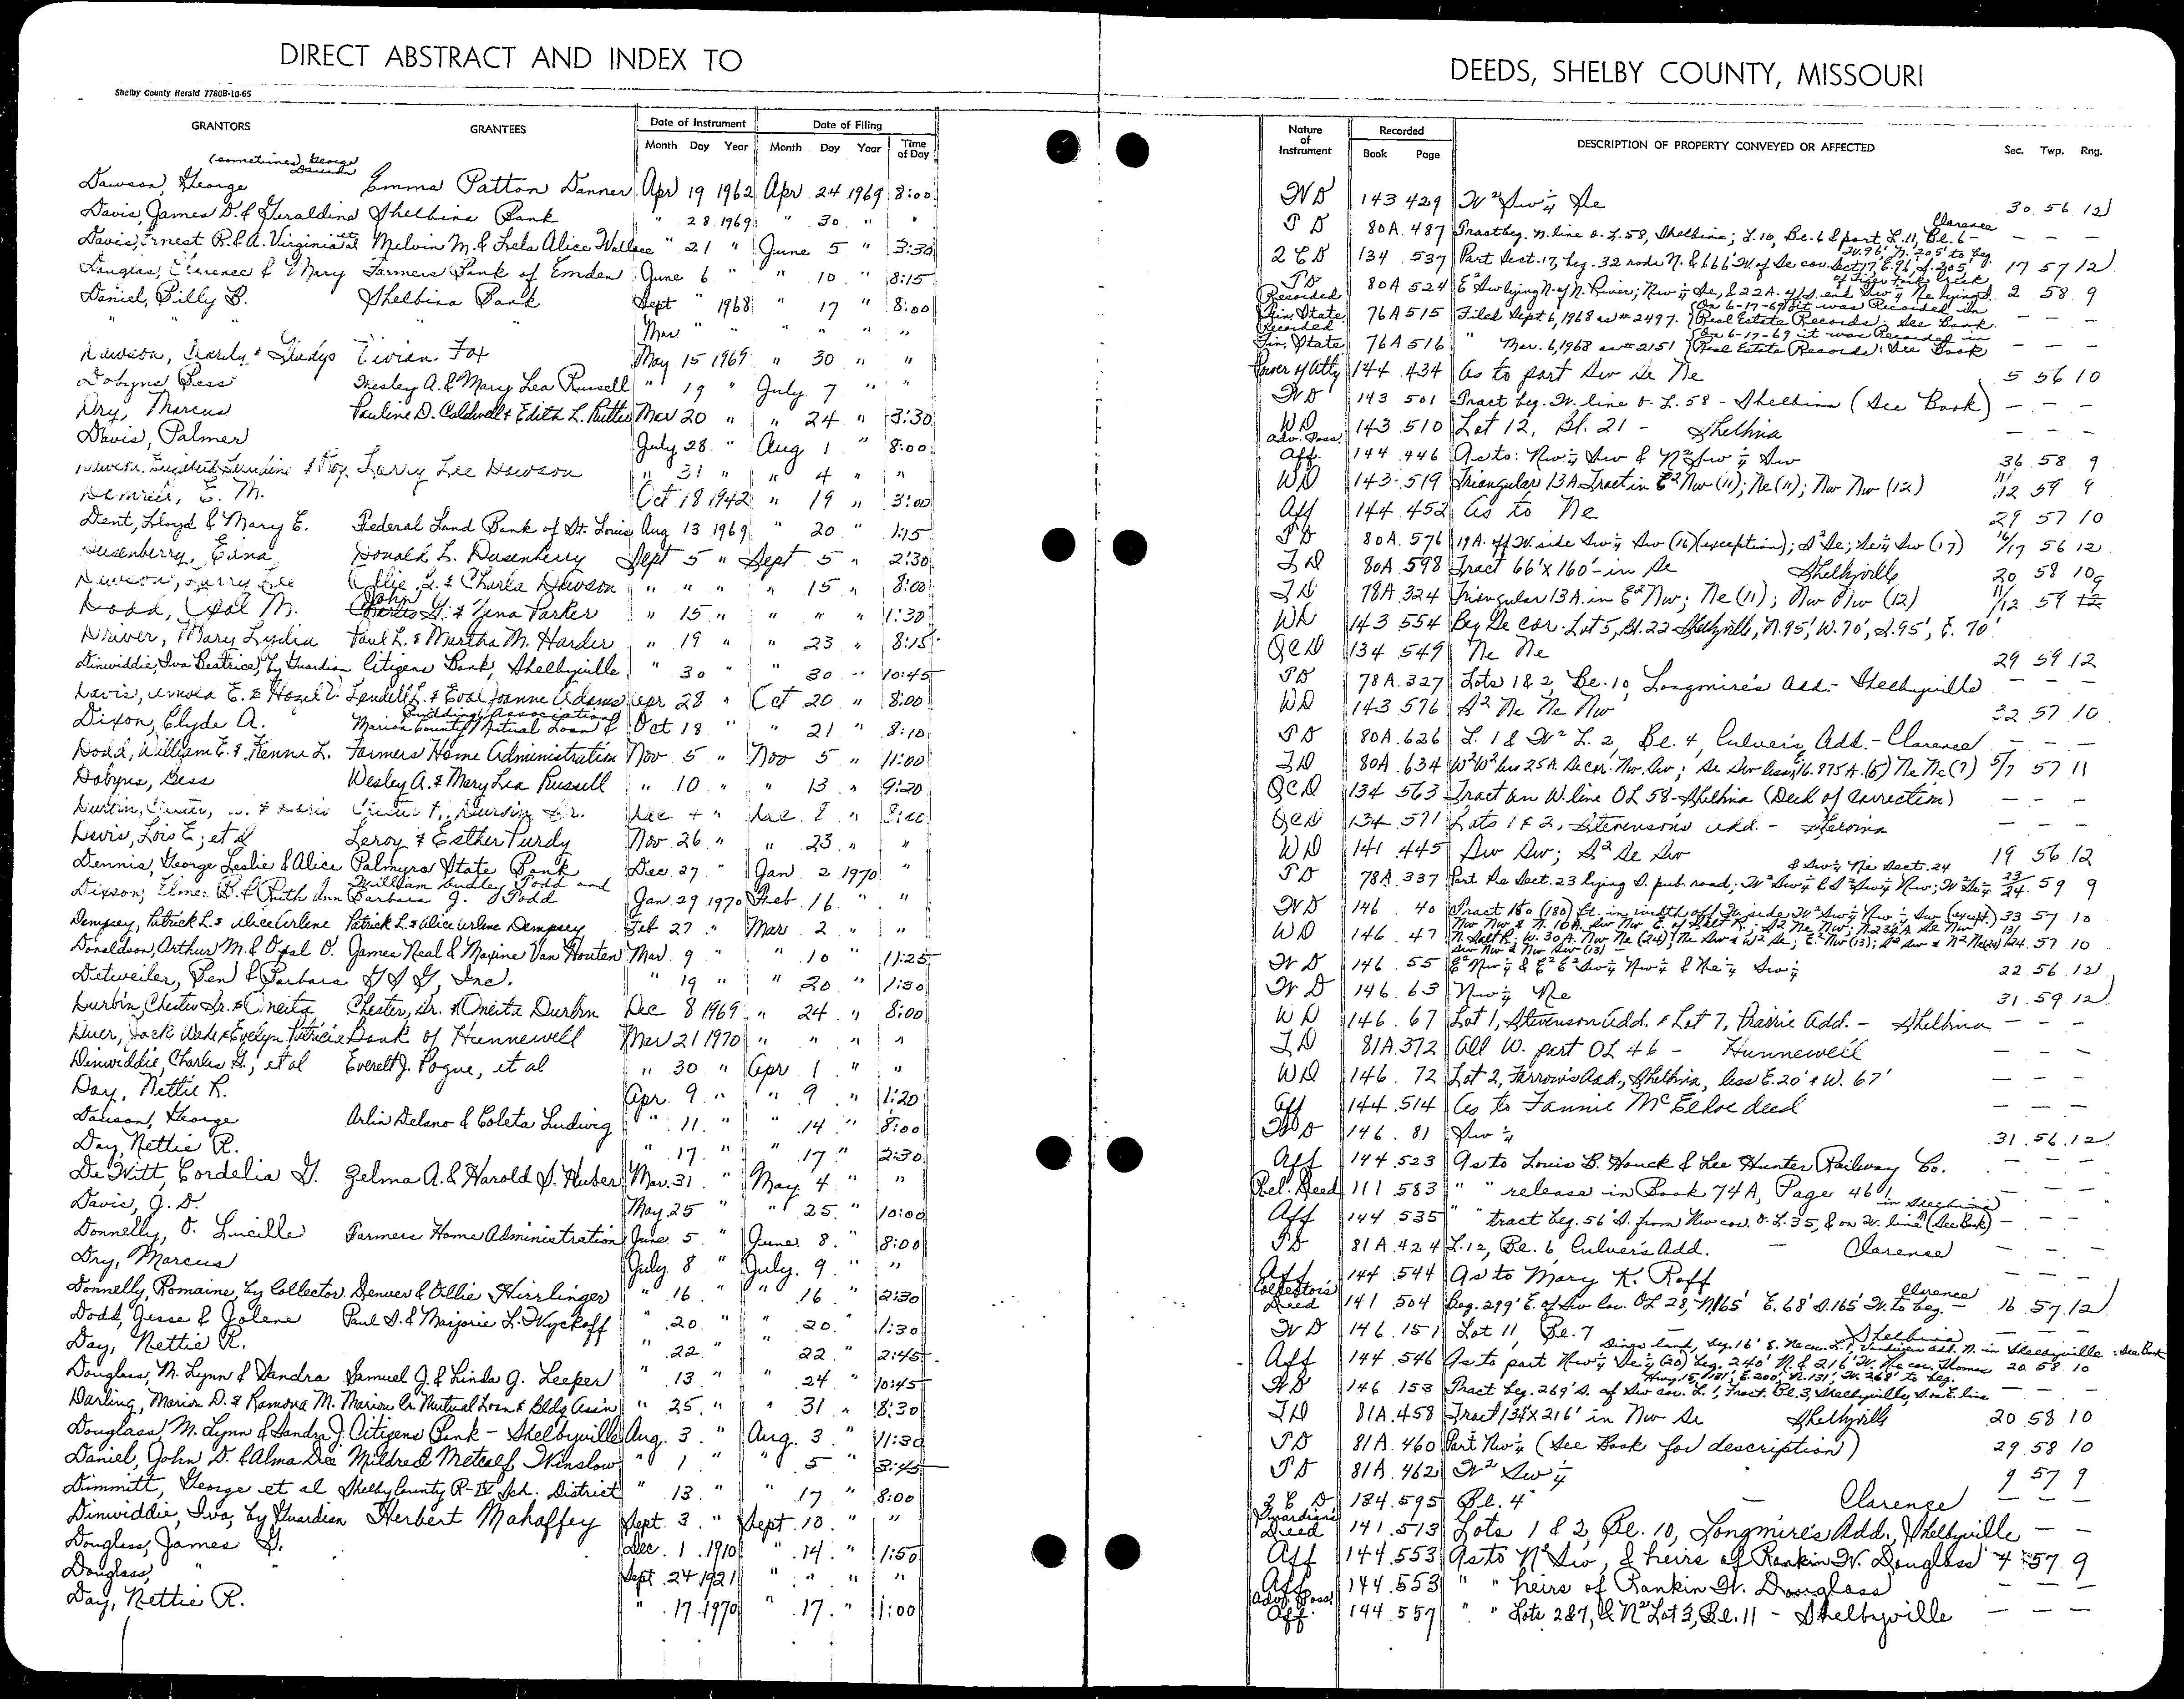 DIRECT ABSTRACT AND INDEX TO
Shelby County Herald 7760B-10-65
GRANTORS GRANTEES Date of Instrument Date of Filing
Month Day Year Month Day Year Time of Day
(sometimes) George Dawson
Dawson, George Emma Patton Danner Apr 19 1962 Apr 24 1969 8:00
Davis, James D. & Geraldine Shelbina Bank " 28 1969 " 30 " "
Davis, Ernest R. & A. Virginia et al Melvin M. & Lela Alice Wallace " 21 " June 5 " 3:30
Douglas, Clarence & Mary Farmers Bank of Emden June 6 " " 10 " 8:15
Daniel, Billy B. Shelbina Bank Sept " 1968 " 17 " 8:00
" " " " Mar " " " " "
Dawson, & Gladys Vivian Fox May 15 1969 " 30 " "
Dobyns, Bess Wesley A. & Mary Lea Russell " 19 " July 7 " "
Dry, Marcus Pauline D. Caldwell & Edith L. Mar 20 " " 24 " 3:30
Davis, Palmer July 28 " Aug 1 " 8:00
Larry Lee Dawson " 31 " " 4 " "
E. M. Oct 18 1942 " 19 " 3:00
Dent, Lloyd & Mary E. Federal Land Bank of St. Louis Aug 13 1969 " 20 " 1:15
Dusenberry, Edna Donald L. Dusenberry Sept 5 " Sept 5 " 2:30
Dawson, Larry Lee & Charla Dawson " " " " 15 " 8:00
Dodd, Opal M. John G. & Parker " 15 " " " " 1:30
Driver, Mary Lydia Paul L. & Martha M. Harder " 19 " " 23 " 8:15
Dinwiddie, Iva Beatrice, by Guardian Citizens Bank, Shelbyville " 30 " " 30 " 10:45
Davis, E. & Hazel Lendell L. & Joanne Adams Apr 28 " Oct 20 " 8:00
Building Association
Dixon, Clyde A. Marion County Mutual Loan & Oct 18 " " 21 " 8:10
Dodd, William E. & L. Farmers Home Administration Nov 5 " Nov 5 " 11:00
Dobyns, Bess Wesley A. & Mary Lea Russell " 10 " " 13 " 9:20
Durbin, Durbin Sr. Dec 4 " Dec. 8 " 8:00
Davis, Lois E; et al Leroy & Esther Purdy Nov 26 " " 23 " "
Dennis, George Leslie & Alice Palmyra State Bank Dec. 27 " Jan. 2 1970 "
William Dudley Todd and
Dixson, Elmer B. & Ruth Ann Barbara J. Todd Jan. 29 1970 Feb. 16 " "
Dempsey, Patrick L. & Alice Arlene Patrick L. & Alice Arlene Dempsey Feb 27 " Mar. 2 " "
Donaldson, Arthur M. & Opal O. James Neal & Maxine Van Houten Mar. 9 " " 10 " 11:25
Detweiler, Ben & Barbara Inc. " 19 " " 20 " 1:30
Durbin, Chester Sr. & Oneita Chester, Sr. & Oneita Durbin Dec 8 1969 " 24 " 8:00
Duer, Jack Wade & Evelyn Patricia Bank of Hunnewell Mar 21 1970 " " " "
Dinwiddie, Charles G., et al Everett J. Pogue, et al " 30 " Apr 1 " "
Day, Nettie R. Apr. 9 " " 9 " 1:20
Dawson, George Arlin Delano & Coleta Ludwig " 11 " " 14 " 8:00
Day, Nettie R. " 17 " " 17 " 2:30
De Witt, Cordelia G. Zelma A. & Harold S. Huber Mar. 31 " May 4 " "
Davis, G. D. May 25 " " 25 " 10:00
Donnelly, O. Lucille Farmers Home Administration June 5 " June 8 " 8:00
Dry, Marcus July 8 " July 9 " "
Donnelly, Romaine, by Collector Denver & Ollie Hirrlinger " 16 " " 16 " 2:30
Dodd, Jesse & Jolene Paul S. & Marjorie L. Wyckoff " 20 " " 20 " 1:30
Day, Nettie R. " 22 " " 22 " 2:45
Douglass, M. Lynn & Sandra Samuel J. & Linda J. Leeper " 13 " " 24 " 10:45
Darling, Marion D. & Ramona M. Marion Co. Mutual Loan & Bldg Ass'n " 25 " " 31 " 8:30
Douglass, M. Lynn & Sandra J. Citizens Bank - Shelbyville Aug. 3 " Aug. 3 " 11:30
Daniel, John D. & Alma Dee Mildred Metcalf Winslow " 1 " " 5 " 3:45
Dimmitt, George et al Shelby County R-IV Sch. District " 13 " " 17 " 8:00
Dinwiddie, Iva, by Guardian Herbert Mahaffey Sept. 3 " Sept. 10 " "
Douglass, James G. Dec. 1 1910 " 14 " 1:50
Douglass, " " Sept. 24 1921 " " " "
Day, Nettie R. " 17 1970 " 17 " 1:00
DEEDS, SHELBY COUNTY, MISSOURI
Nature of Instrument Recorded Book Page DESCRIPTION OF PROPERTY CONVEYED OR AFFECTED Sec. Twp. Rng.
WD 143 429 W² Sw¼ Se 30 56 12
TD 80A 487 Tract beg. n. line O. L. 58, Shelbina; L. 10, Bl. 6 & part L. 11, Bl. 6 - Clarence — — —
2 C D 134 537 Part Sect. 17, beg. 32 rods N. & 666' W. of Se cor. Sect 17, E. 96', S. 205', W. 96', N. 205' to beg. 17 57 12
TD 80A 524 E² Sw lying N. of N. River; Nw¼ Se, & 22A. off S. end Sw¼ Ne lying S. of Tiger Fork Creek 2 58 9
Recorded Fin. State. 76A 515 Filed Sept 6, 1968 as # 2497. (On 6-17-69 it was Recorded in Real Estate Records. See Book — — —
Recorded Fin. State 76A 516 " Mar. 6, 1968 as # 2151 (On 6-17-69 it was Recorded in Real Estate Records): See Book — — —
Power of Atty 144 434 As to part Sw Se Ne 5 56 10
WD 143 501 Tract beg. W. line O. L. 58 - Shelbina (See Book) — — —
WD 143 510 Lot 12, Bl. 21 - Shelbina — — —
Adv. Poss. Aff. 144 446 As to: Nw¼ Sw & N² Sw¼ Sw 36 58 9
WD 143 519 Triangular 13A Tract in E² Nw (11); Ne (11); Nw Nw (12) 11/12 59 9
Aff 144 452 As to Ne 29 57 10
TD 80A 576 19A. off W. side Sw¼ Sw (16)(exception); S² Se; Se¼ Sw (17) 16/17 56 12
TD 80A 598 Tract 66' x 160' - in Se Shelbyville 20 58 10
TD 78A 324 Triangular 13A. in E² Nw; Ne (11); Nw Nw (12) 11/12 59 9
WD 143 554 Beg Se cor. Lot 5, Bl. 22 Shelbyville, N. 95', W. 70', S. 95', E. 70'
QCD 134 549 Ne Ne 29 59 12
TD 78A 327 Lots 1 & 2, Bl. 10, Longmire's Add. - Shelbyville — — —
WD 143 576 S² Ne Ne Nw 32 57 10
TD 80A 626 L. 1 & W² L. 2, Bl. 4, Culver's Add. - Clarence — — —
TD 80A 634 W² W² less 25A. Se cor. Nw Sw; Se Sw less 16.875 A. (5) Ne Ne (7) 5/7 57 11
QCD 134 563 Tract on W. line OL 58 - Shelbina (Deed of Correction) — — —
QCD 134 571 Lots 1 & 2, Stevenson's Add. - Shelbina — — —
WD 141 445 Sw Sw; S² Se Sw 19 56 12
& Sw¼ Ne Sect. 24
TD 78A 337 Part Se Sect. 23 lying S. pub. road; W² Sw¼ & S² Sw¼ Nw; W² Se¼ 23/24 59 9
WD 146 40 Tract 180 (180) ft. in width off W. side W² Sw¼ Nw¼ Sw (except.) 33 57 10
WD 146 47 N. Salt R.; W. 30A. Nw Ne (24); Ne Sw & W² Se; E² Nw (13); 13/24 57 10
WD 146 55 E² Nw¼ & E² E² Sw¼ Nw¼ & Ne¼ Sw¼ 22 56 12
WD 146 63 Nw¼ Ne 31 59 12
WD 146 67 Lot 1, Stevenson Add. & Lot 7, Prairie Add. - Shelbina — — —
TD 81A 372 All W. part OL 46 - Hunnewell — — —
WD 146 72 Lot 2, Farrow's Add., Shelbina, less E. 20' & W. 67' — — —
Aff 144 514 As to Fannie McElhoe deed — — —
WD 146 81 Sw¼ 31 56 12
Aff 144 523 As to Louis B. Houck & Lee Hunter Railway Co. — — —
Rel. Deed 111 583 " " release in Book 74A, Page 461 — — —
Aff 144 535 " " tract beg. 56' S. from Nw cor. O. L. 35, & on W. line in Shelbina (See Book) — — —
TD 81A 424 L. 12, Bl. 6 Culver's Add. - Clarence — — —
Aff 144 544 As to Mary K. Roff — — —
Collector's Deed 141 504 Beg. 299' E. of Sw Cor. OL 28, N. 165' E. 68' S. 165' W. to beg. - Clarence 16 57 12
WD 146 151 Lot 11, Bl. 7 - Shelbina — — —
Aff 144 546 As to part Nw¼ Se¼ (20) beg. 240' N. & 216' W. Ne cor. Thomas 20 58 10
WD 146 153 Tract beg. 269' S. of Sw cor. L. 1, Tract Bl. 3, Shelbyville, S. on E. line Hwy. 15, 131', E. 200', N. 131', W. 268' to beg. — — —
TD 81A 458 Tract 134' x 216' in Nw Se Shelbyville 20 58 10
TD 81A 460 Part Nw¼ (See Book for description) 29 58 10
TD 81A 462 W² Sw¼ 9 57 9
2 C D 134 595 Bl. 4 - Clarence — — —
Guardian's Deed 141 513 Lots 1 & 2, Bl. 10, Longmire's Add., Shelbyville — —
Aff 144 553 As to N² Sw, & heirs of Rankin W. Douglass 4 57 9
Aff 144 553 " " heirs of Rankin W. Douglass
Adv. Poss. Aff. 144 557 " " Lots 2 & 7, & N² Lot 3, Bl. 11 - Shelbyville — — —